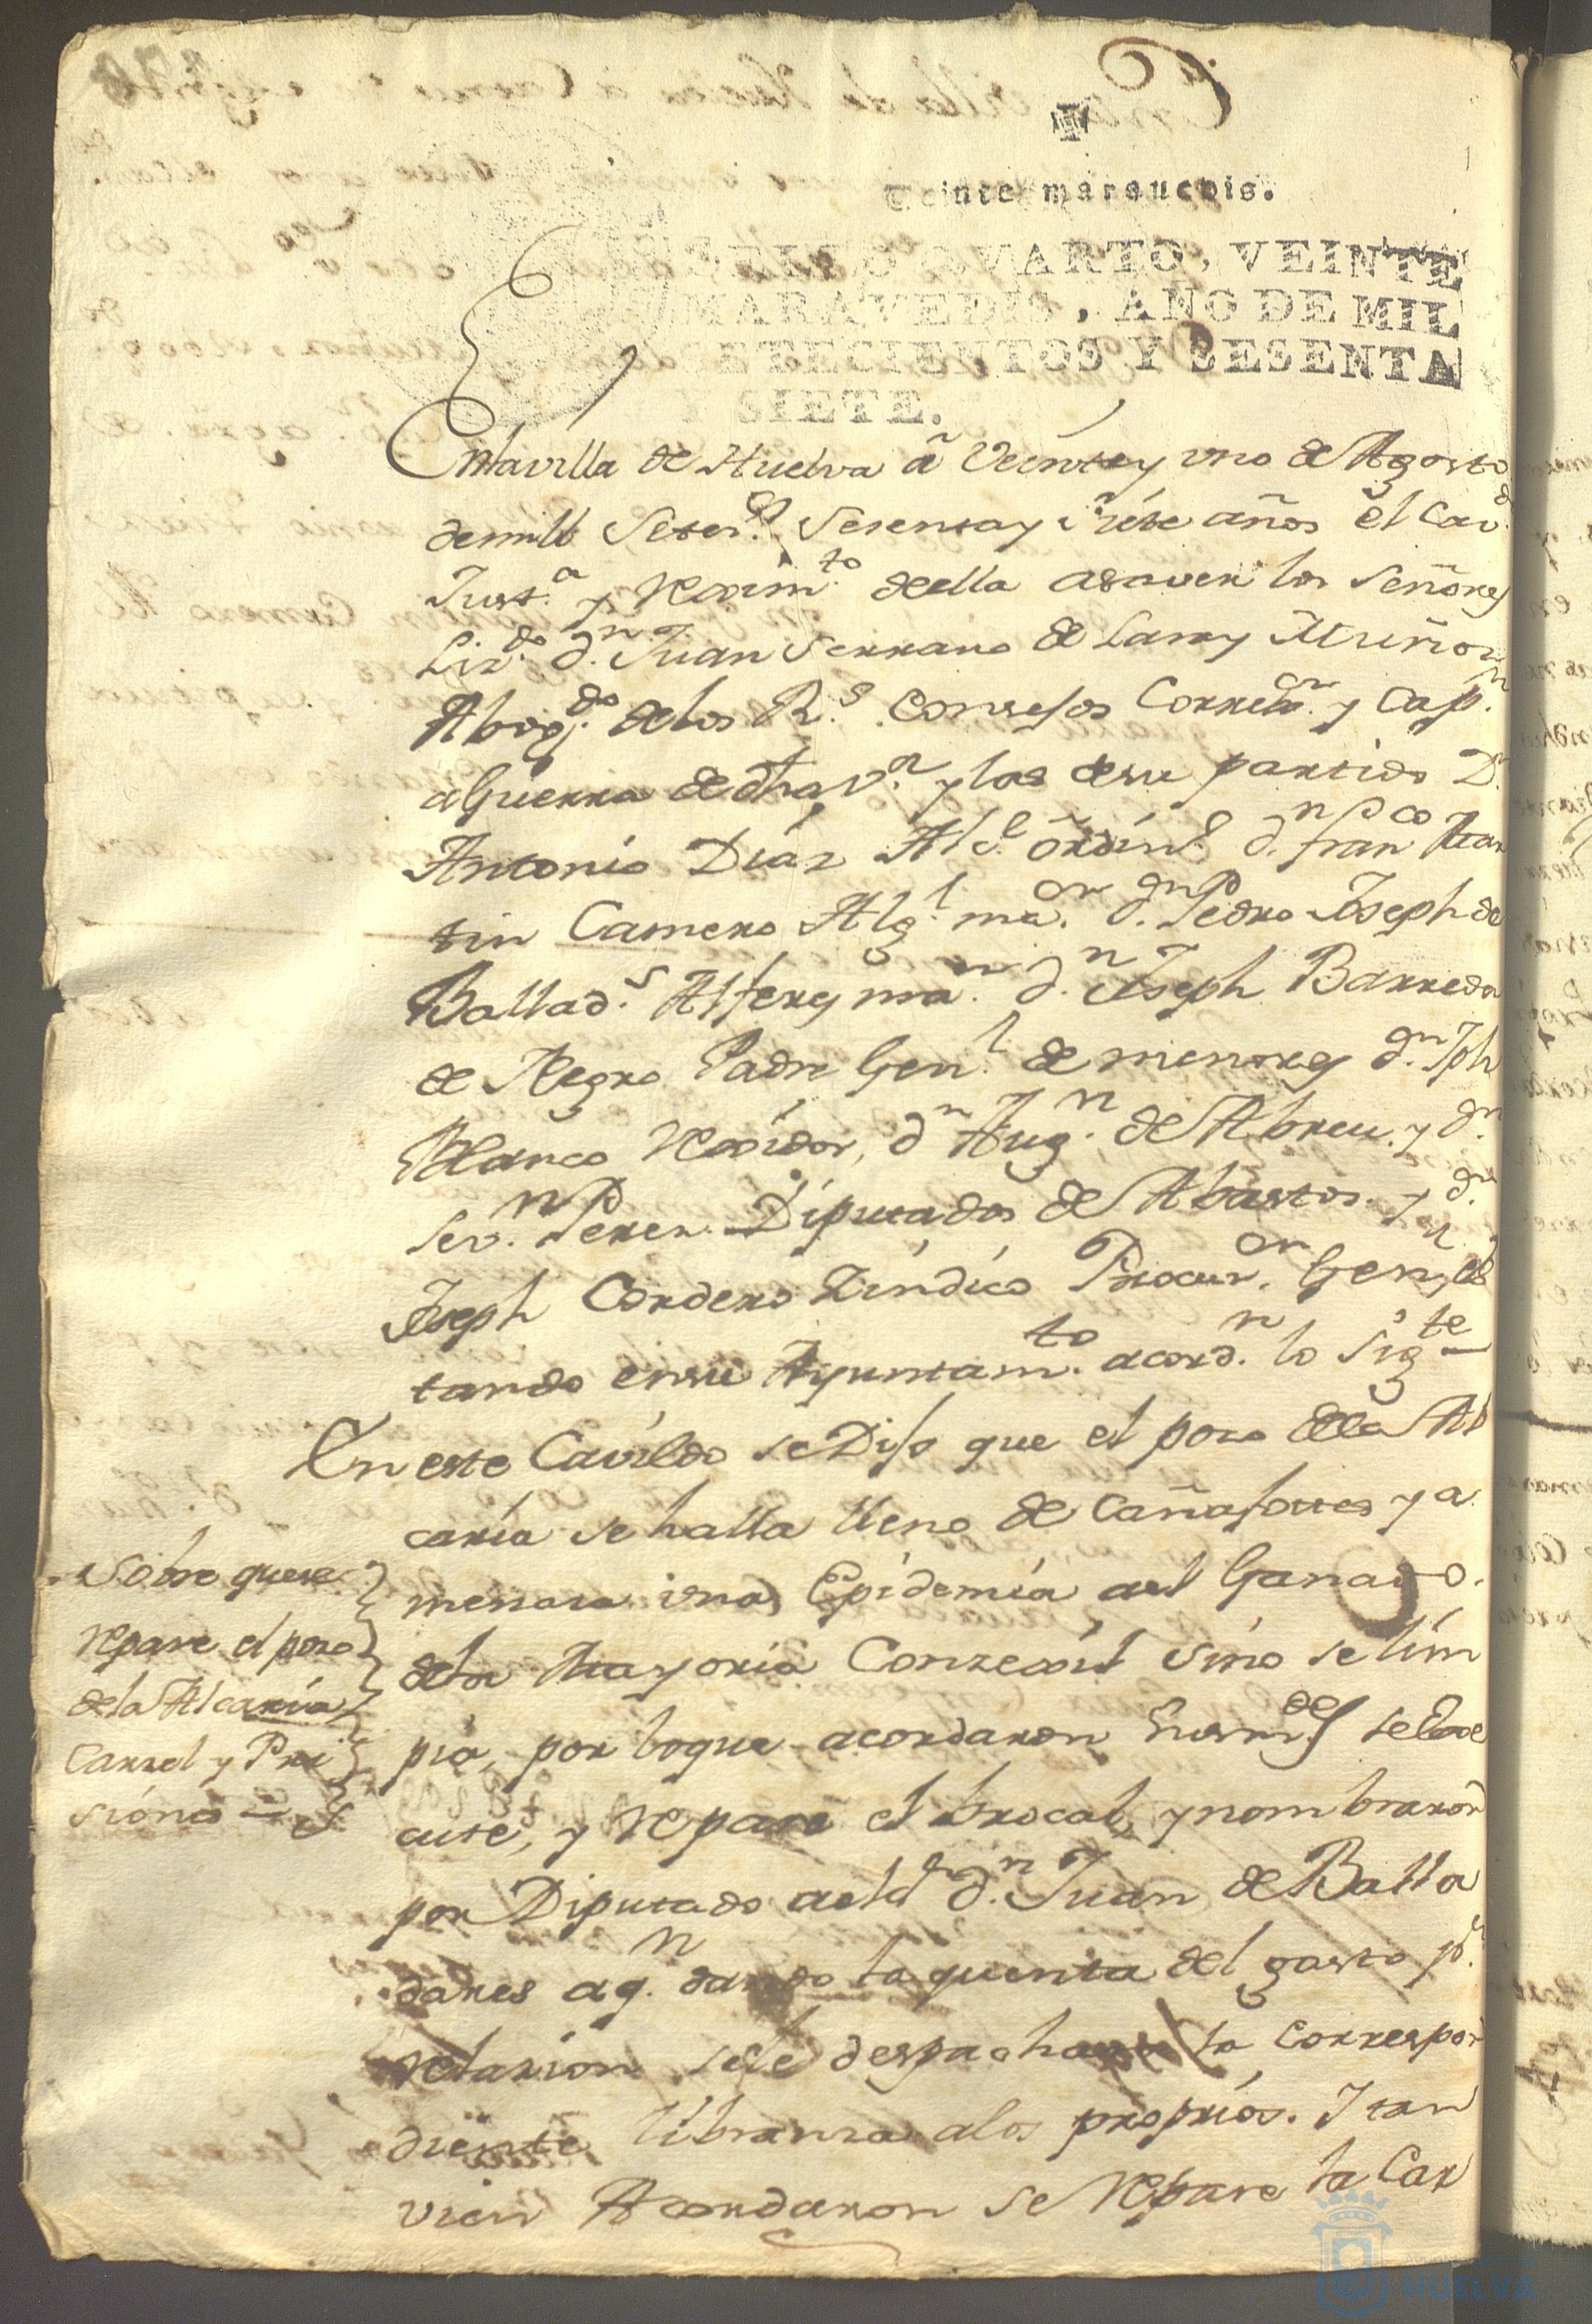 Veinte marauedis.
SELLO QVARTO, VEINTE
MARAVEDIS, AÑO DE MIL
SETECIENTOS Y SESENTA
Y SIETE.
Enlavilla de Huelva à Veintey uno de Agosto
demill Seteci.os Sesentay siete años el Cav.do
Just.a y Rexim.to deella asaver los Señores
Liz.do d.n Juan Serrano de Lamy Muñon
Abog.do delos R.s Consejos Corre.or y Cap.n
aGuerra de dha v.a y las desu partido D.n
Antonio Diaz Alc.e ordin.o d.n fran.co Mar
tin Camero Alg.l ma.or d.n Pedro Joseph de
Ballad.s Alferez ma.or d.n Joseph Barreda
de Negro Padre Gen.l de menores d.n Jph
Blanco Rexidor, d.n Aug.n de Abreu. y d.n
Sev.n Perez. Diputados de Abastos. y d.n
Joseph Cordero Zindico Procur.or Gen.l es
tando ensu Ayuntam.to acord.n lo sig.te
En este Cavildo se Dijo que el pozo dela Al
caria se halla lleno de Cañafotes y a
menasa una Epidemia ael Ganado.
dela Mayoria Conzexil sino se lim
pia, por loque acordaron Susm.des se Exe
cute, y Repare el brocal, y nombraron
por Diputado aeld.n d.n Juan de Balla
dares aq.n dando la quenta del gasto p.r
relazion sele despachara la correspon
diente libranza alos proprios. Y tan
vien Acordaron se Repare la Car
Sobre quese
Repare el pozo
dela Alcaria
Carzel y Pri
siones =
HUELVA